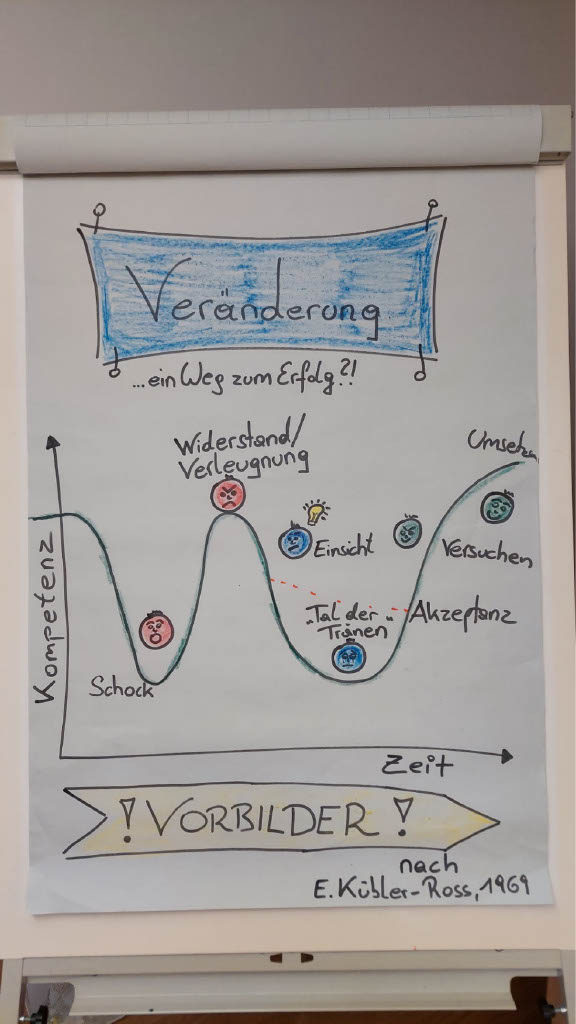 Veränderung
...ein Weg zum Erfolg?!
Widerstand/
Verleugnung
Umsetzen
Einsicht
Versuchen
"Tal der"
Tränen
Akzeptanz
Schock
Kompetenz
Zeit
! VORBILDER !
nach
E. Kübler-Ross, 1969